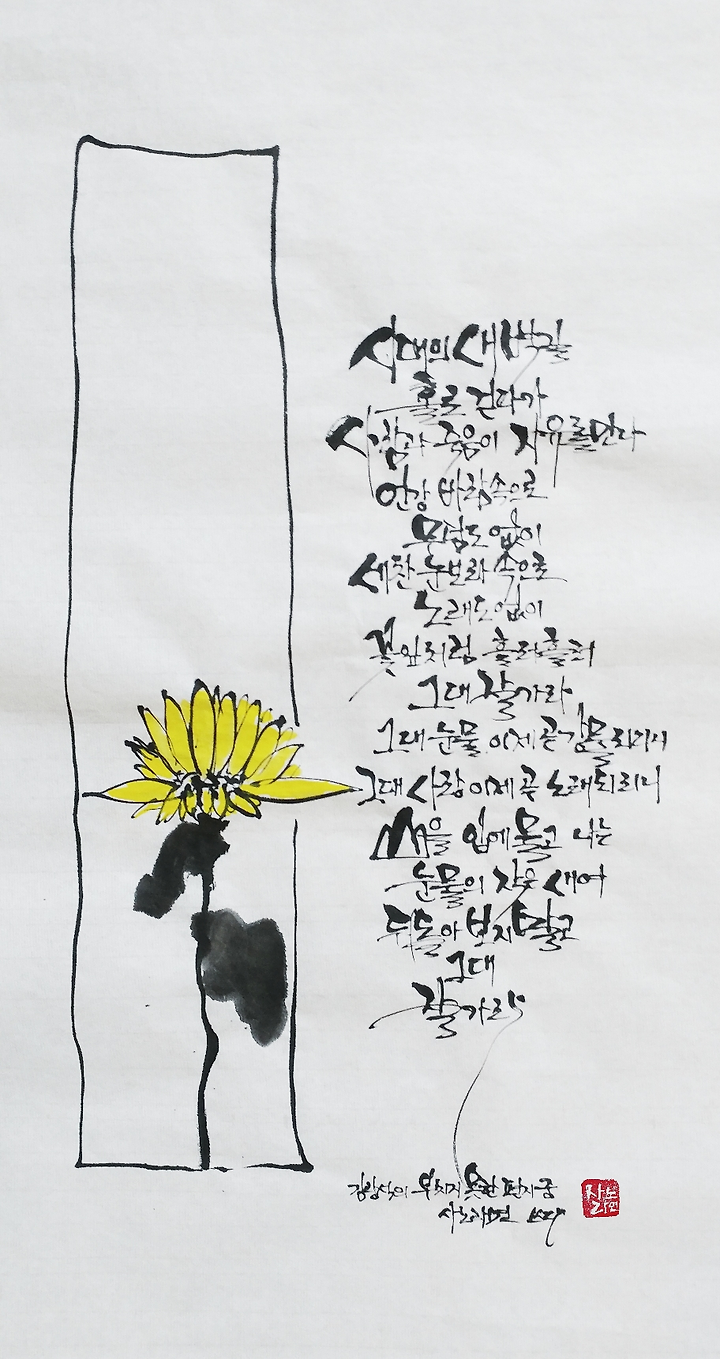 시대의 새벽길
홀로 걷다가
사랑과 죽음이 자유를 만나
언강 바람속으로
무덤도 없이
세찬 눈보라 속으로
노래도 없이
꽃잎처럼 흘러흘러
그대 잘가라
그대 눈물 이제 곧 강물 되리니
그대 사랑 이제 곧 노래되리니
산을 입에 물고 나는
눈물의 작은 새여
뒤돌아 보지 말고
그대
잘가라
김광석의 부치지 못한 편지 중
사노라면
사노
라면